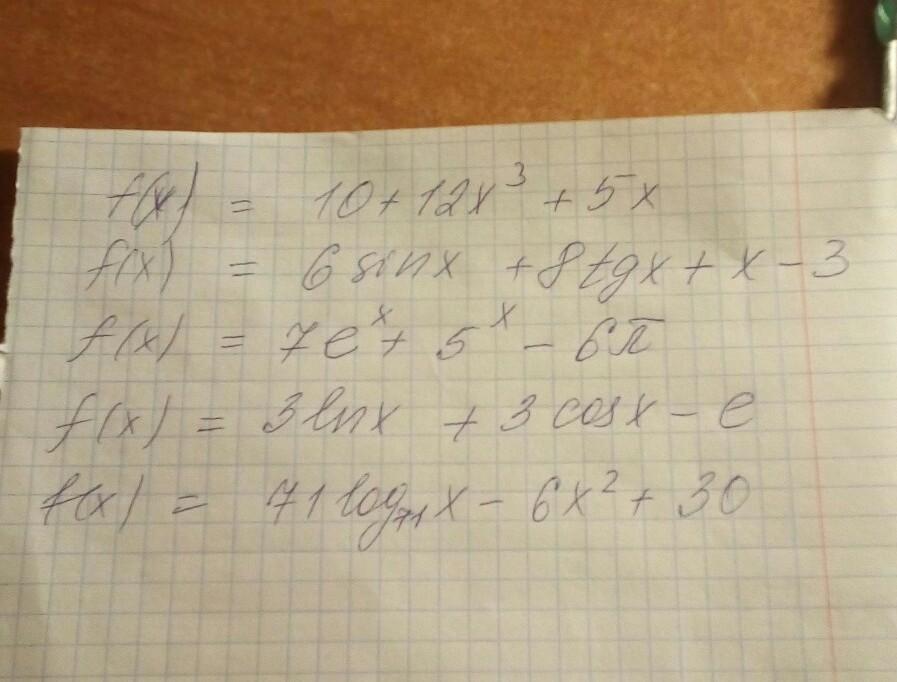 f(x) = 10 + 12x³ + 5x
f(x) = 6 sin x + 8 tg x + x - 3
f(x) = 7eˣ + 5ˣ - 6π
f(x) = 3 ln x + 3 cos x - e
f(x) = 71 log₇₁ x - 6x² + 30